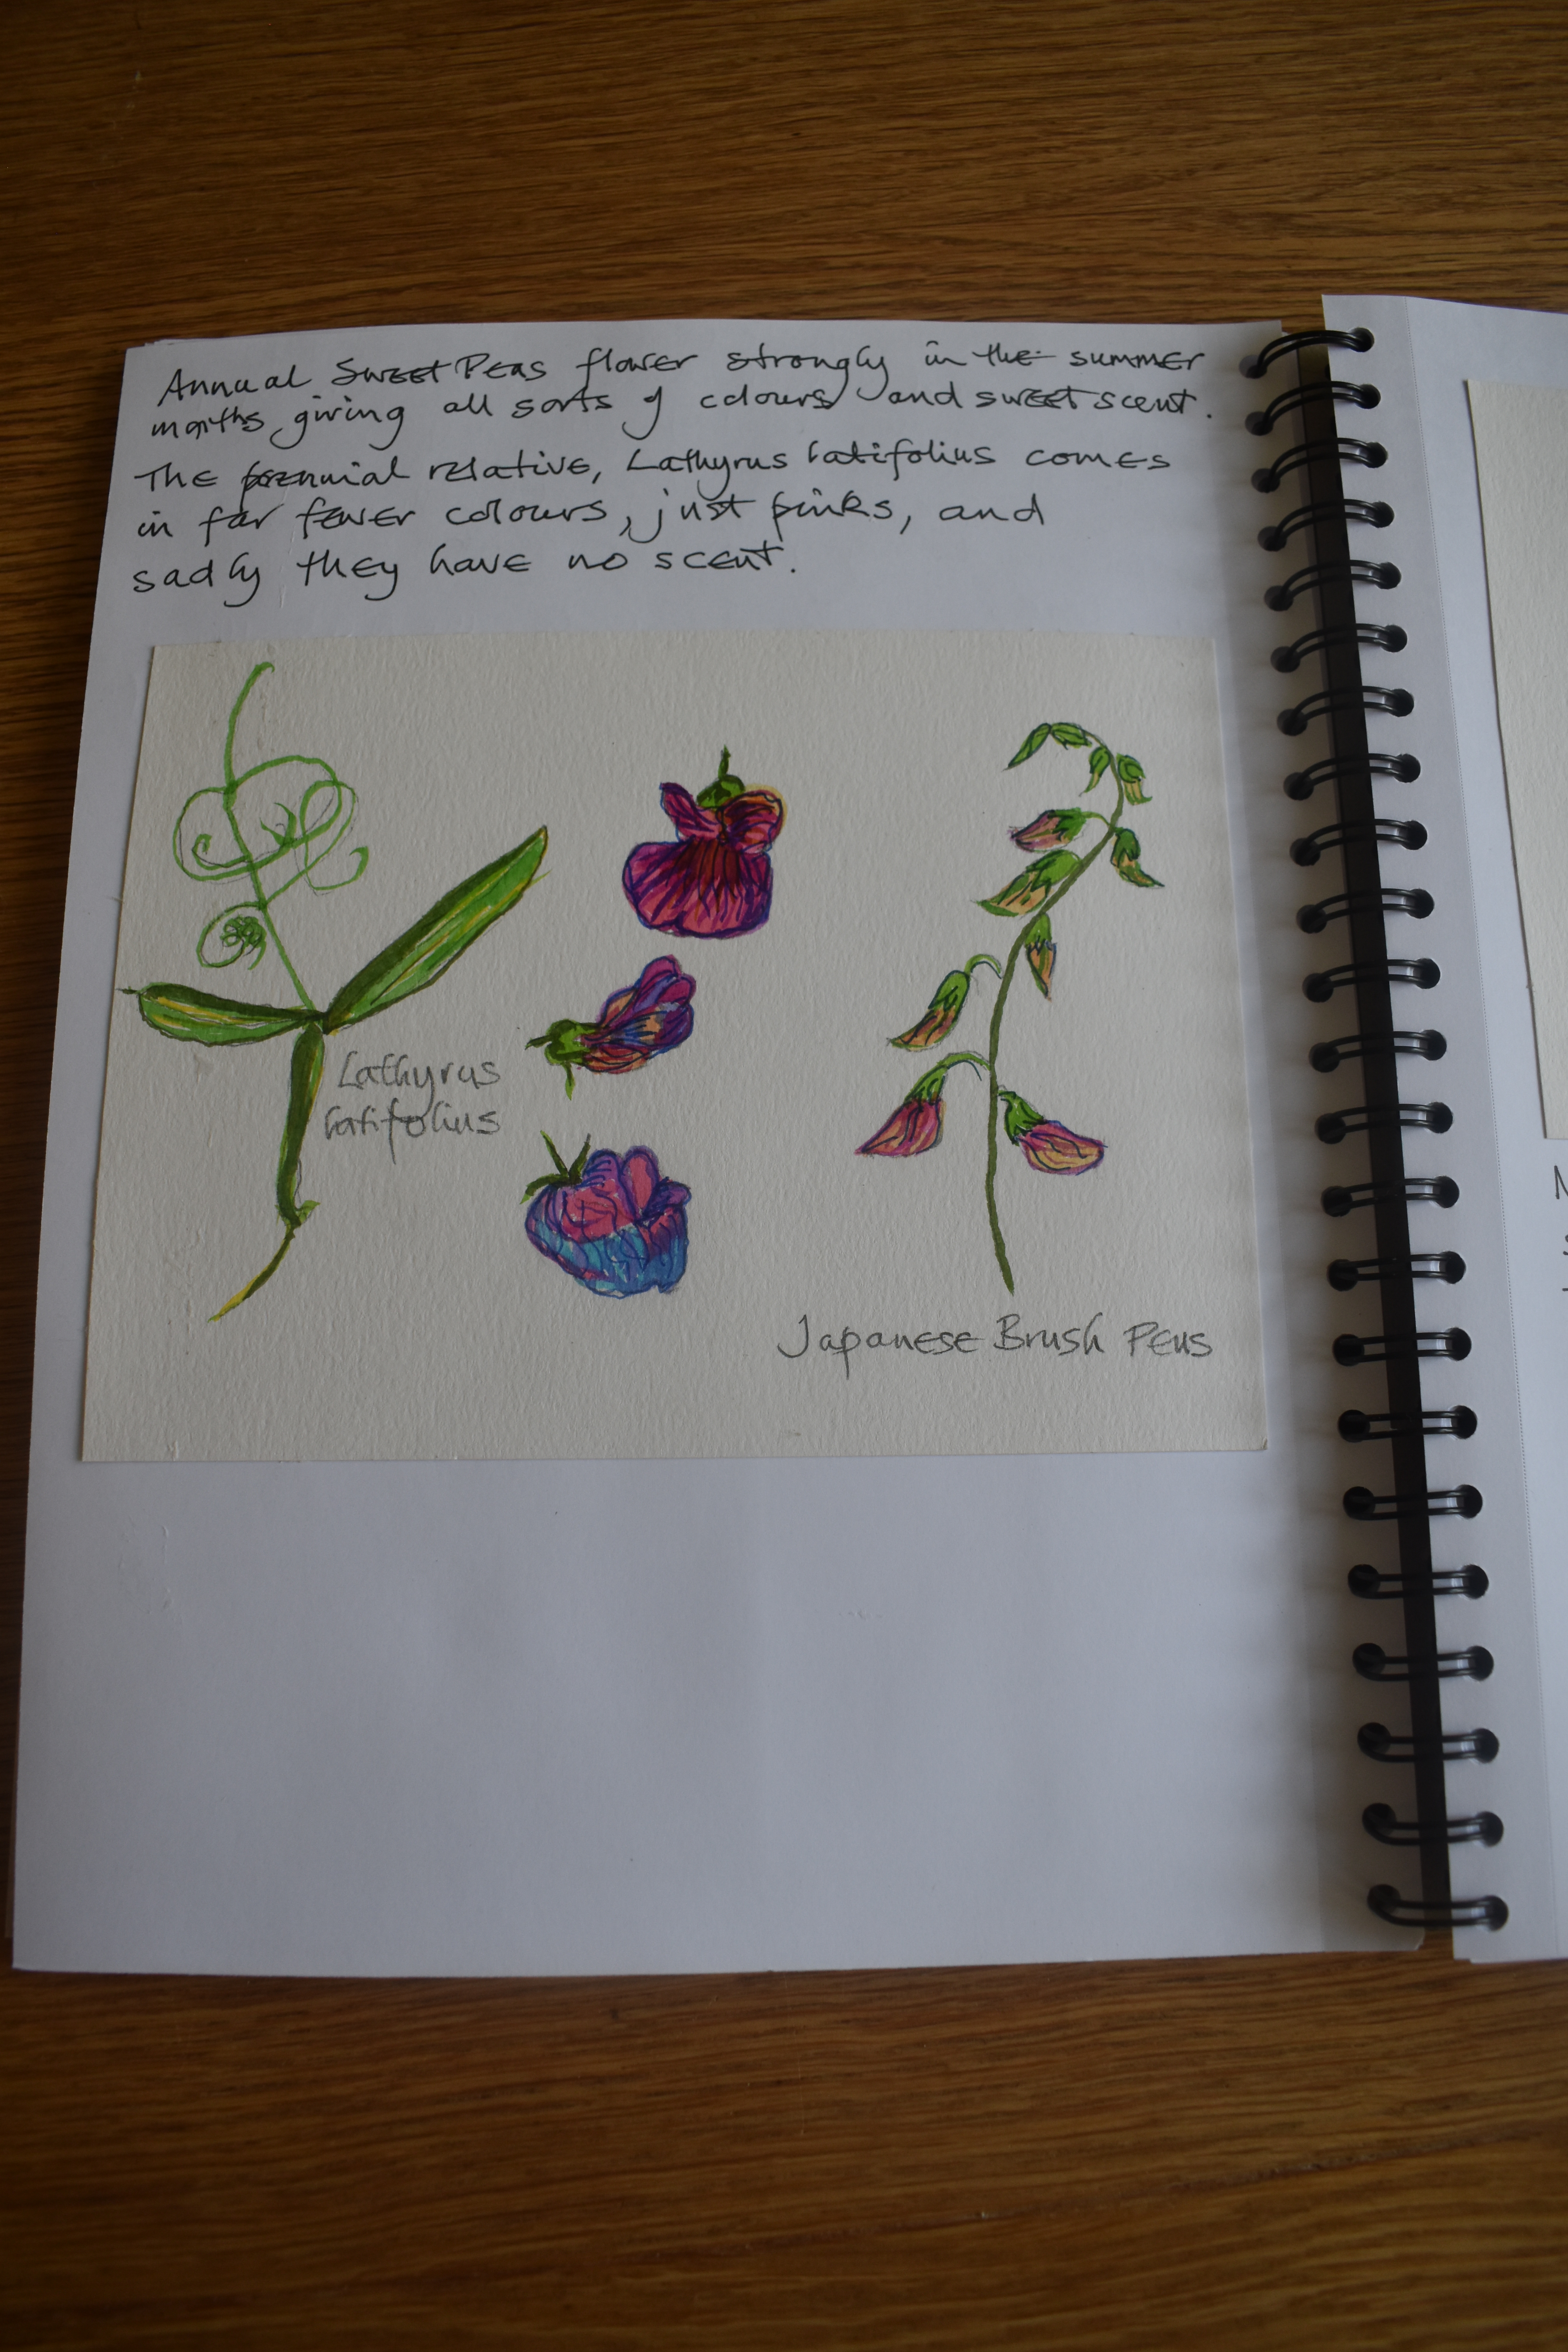 Annual Sweet Peas flower strongly in the summer
months giving all sorts of colours and sweet scent.
The perennial relative, Lathyrus latifolius comes
in far fewer colours, just pinks, and
sadly they have no scent.
Lathyrus
latifolius
Japanese Brush Pens